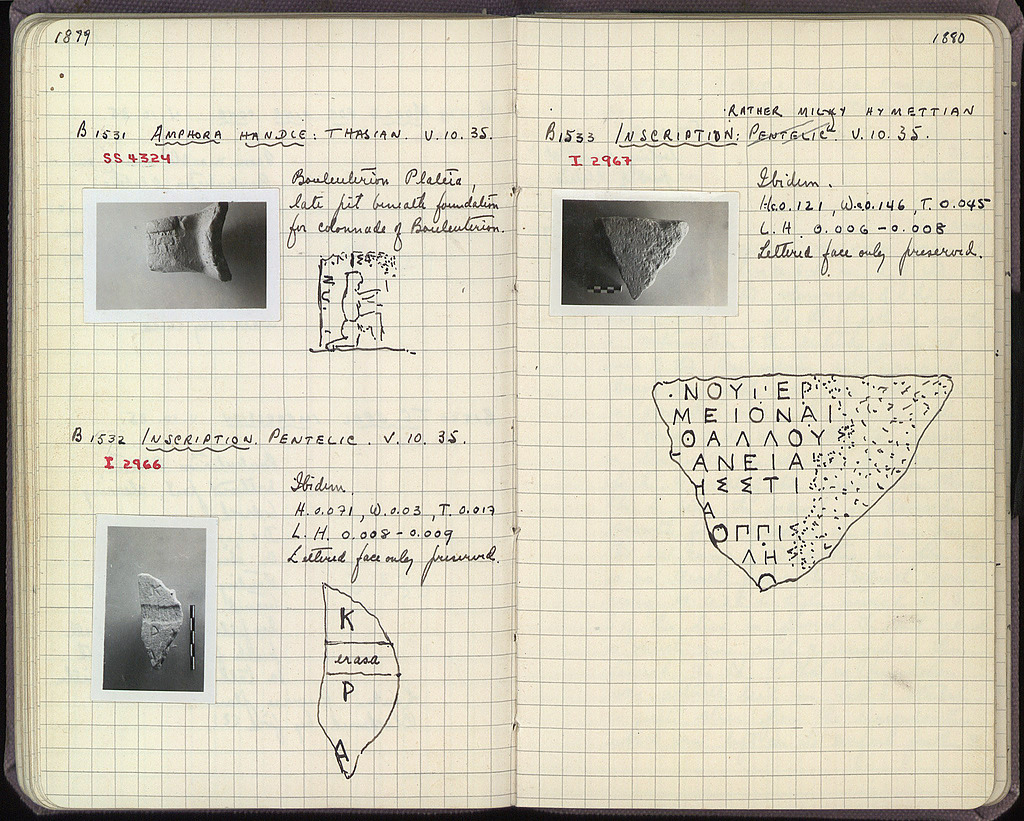 1879
B 1531 AMPHORA HANDLE: THASIAN. V. 10. 35.
SS 4324
Bouleuterion Plateia,
late pit beneath foundation
for colonnade of Bouleuterion.
B 1532 INSCRIPTION. PENTELIC. V. 10. 35.
I 2966
Ibidem.
H. 0.071, W. 0.03, T. 0.017
L. H. 0.008 - 0.009
Lettered face only preserved.
K
erasa
P
A
1880
RATHER MILKY HYMETTIAN
B 1533 INSCRIPTION: PENTELIC. V. 10. 35.
I 2967
Ibidem.
H. 0.121, W. 0.146, T. 0.045
L. H. 0.006 - 0.008
Lettered face only preserved.
ΝΟΥΓΕΡ
ΜΕΙΟΝΑΙ
ΘΑΛΛΟΥ
ΑΝΕΙΑ
ΗΣΣΤΙ
Α
ΟΓΓΙΣ
ΛΗ
Ο